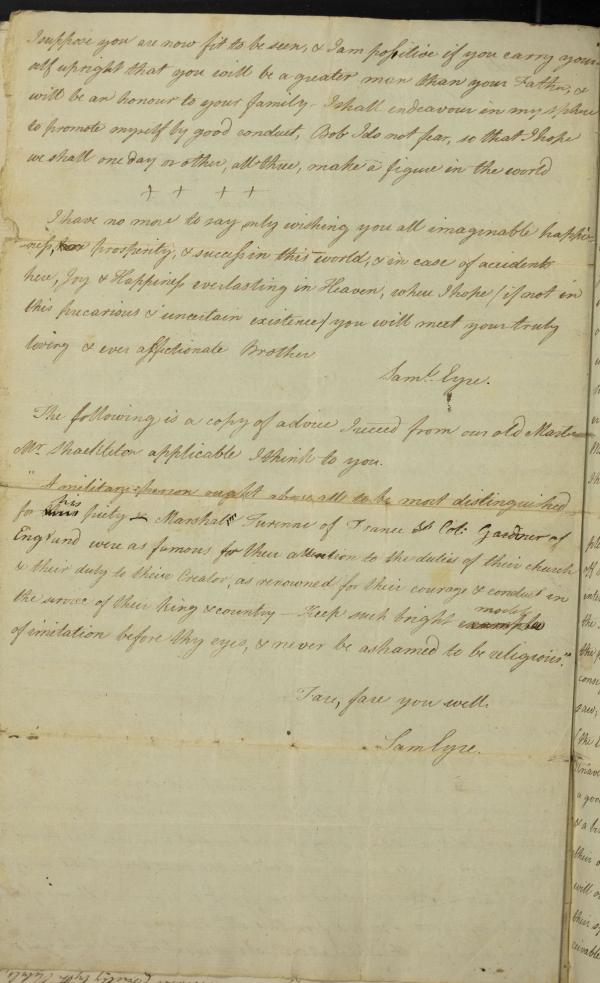 I suppose you are now fit to be seen, & I am positive if you carry your
self upright that you will be a greater man than your Father, &
will be an honour to your family. I shall endeavour in my sphere
to promote myself by good conduct, Bob I do not fear, so that I hope
we shall one day or other, all three, make a figure in the world
+ + + +
I have no more to say only wishing you all imaginable happi-
ness, prosperity, & success in this world, & in case of accidents
here, Joy & Happiness everlasting in Heaven, where I hope (if not in
this precarious & uncertain existence) you will meet your truly
loving & ever affectionate Brother
Saml. Eyre.
The following is a copy of advice I recd from our old Master
Mr. Shackleton applicable I think to you.
"A military person ought above all to be most distinguished
for his piety – Marshal Turenne of France & Col: Gardiner of
England were as famous for their attention to the duties of their church
& their duty to their Creator, as renowned for their courage & conduct in
the service of their king & country – Keep such bright models
of imitation before thy eyes, & never be ashamed to be religious."
Fare, fare you well.
Sam Eyre.